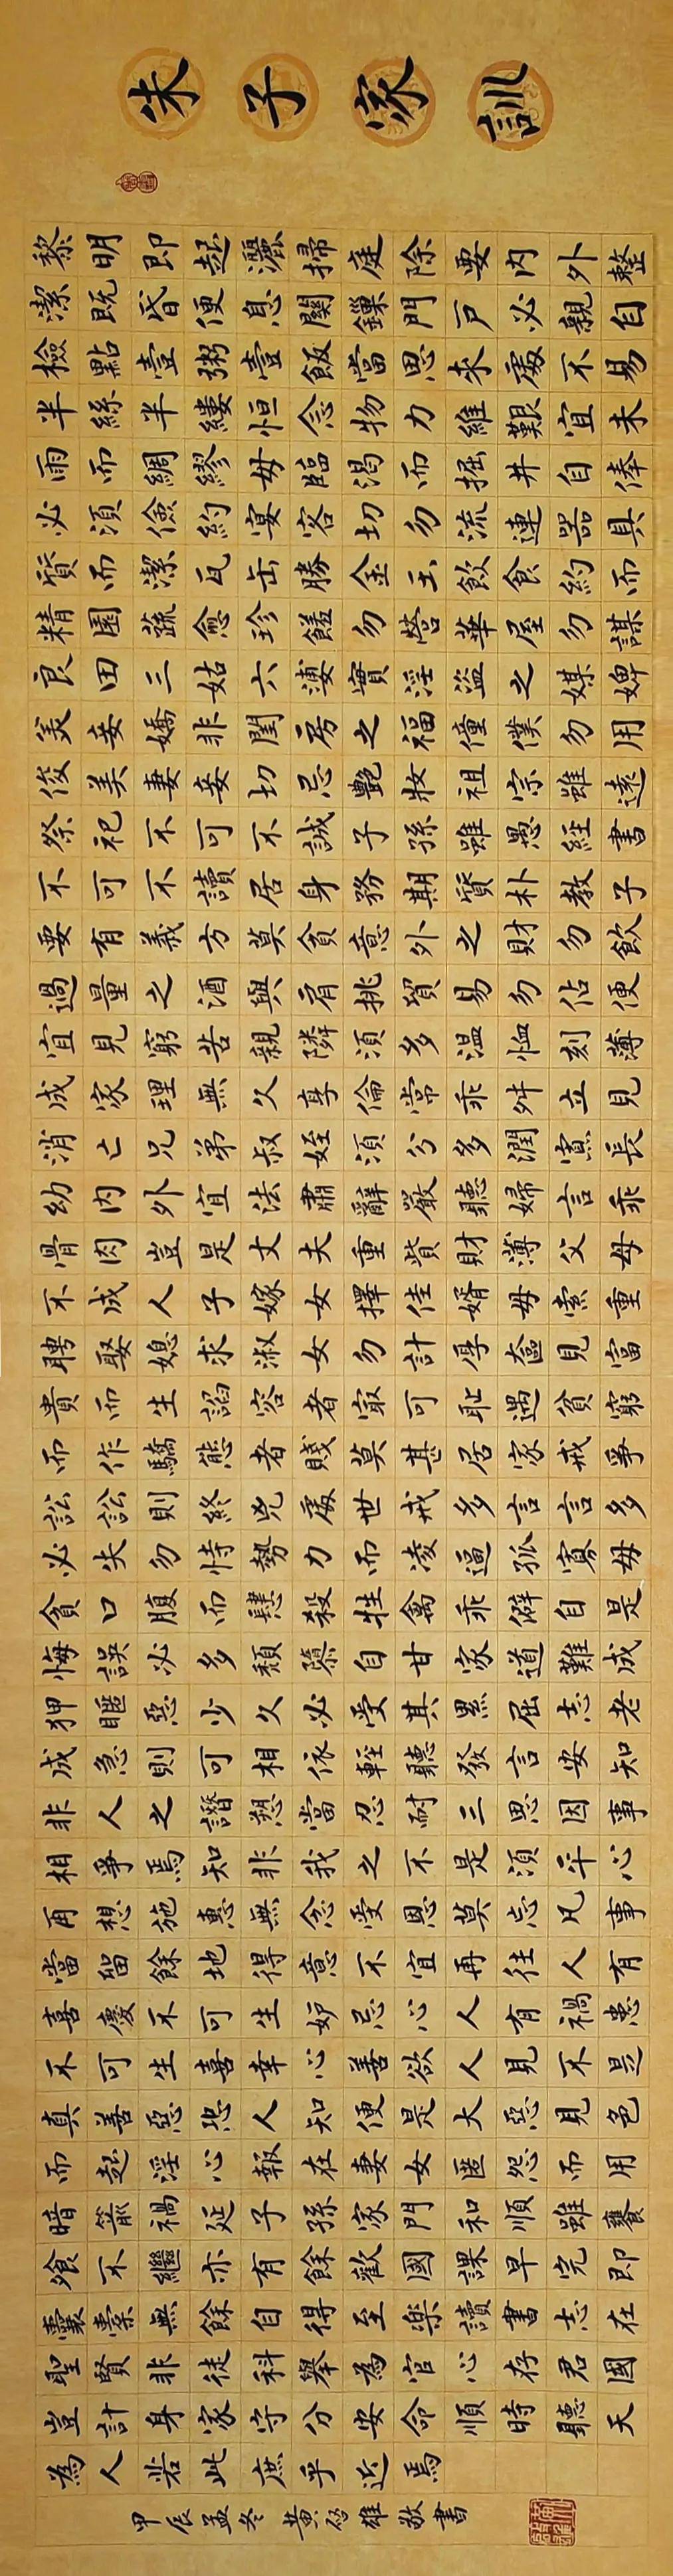 朱子家訓
黎明即起灑掃庭除要內外整
潔既昏便息關鏁門戶必親自
檢點壹粥壹飯當思來處不易
半絲半縷恒念物力維艱宜未
雨而綢繆毋臨渴而掘井自俸
必須儉約宴客切勿流連器具
質而潔瓦缶勝金玉飲食約而
精園蔬愈珍饈勿營華屋勿謀
良田三姑六婆實淫盜之媒婢
美妾嬌非閨房之福僮僕勿用
俊美妻妾切忌艷妝祖宗雖遠
祭祀不可不誠子孫雖愚經書
不可不讀居身務期質朴教子
要有義方莫貪意外之財勿飲
過量之酒與肩挑貿易勿佔便
宜見窮苦親隣須多温恤刻薄
成家理無久享倫常乖舛立見
消亡兄弟叔姪須分多潤寡長
幼內外宜法肅辭嚴聽婦言乖
骨肉豈是丈夫重貲財薄父母
不成人子嫁女擇佳婿毋索重
聘娶媳求淑女勿計厚奩見富
貴而生諂容者最可恥遇貧窮
而作驕態者賤莫甚居家戒爭
訟訟則終凶處世戒多言言多
必失勿恃勢力而凌逼孤寡毋
貪口腹而肆殺牲禽乖僻自是
悔誤必多頹隳自甘家道難成
狎暱惡少久必受其累屈志老
成急則可相依輕聽發言安知
非人之譖愬當忍耐三思因事
相爭焉知非我之不是須平心
再想施惠無念受恩莫忘凡事
當留餘地得意不宜再往人有
喜慶不可生妒忌心人有禍患
不可生喜幸心善欲人見不是
真善惡恐人知便是大惡見色
而起淫心報在妻女匿怨而用
暗箭禍延子孫家門和順雖饔
飧不繼亦有餘歡國課早完即
囊橐無餘自得至樂讀書志在
聖賢非徒科舉為官心存君國
豈計身家守分安命順時聽天
為人若此庶乎近焉
甲辰孟冬 黄 雄敬書